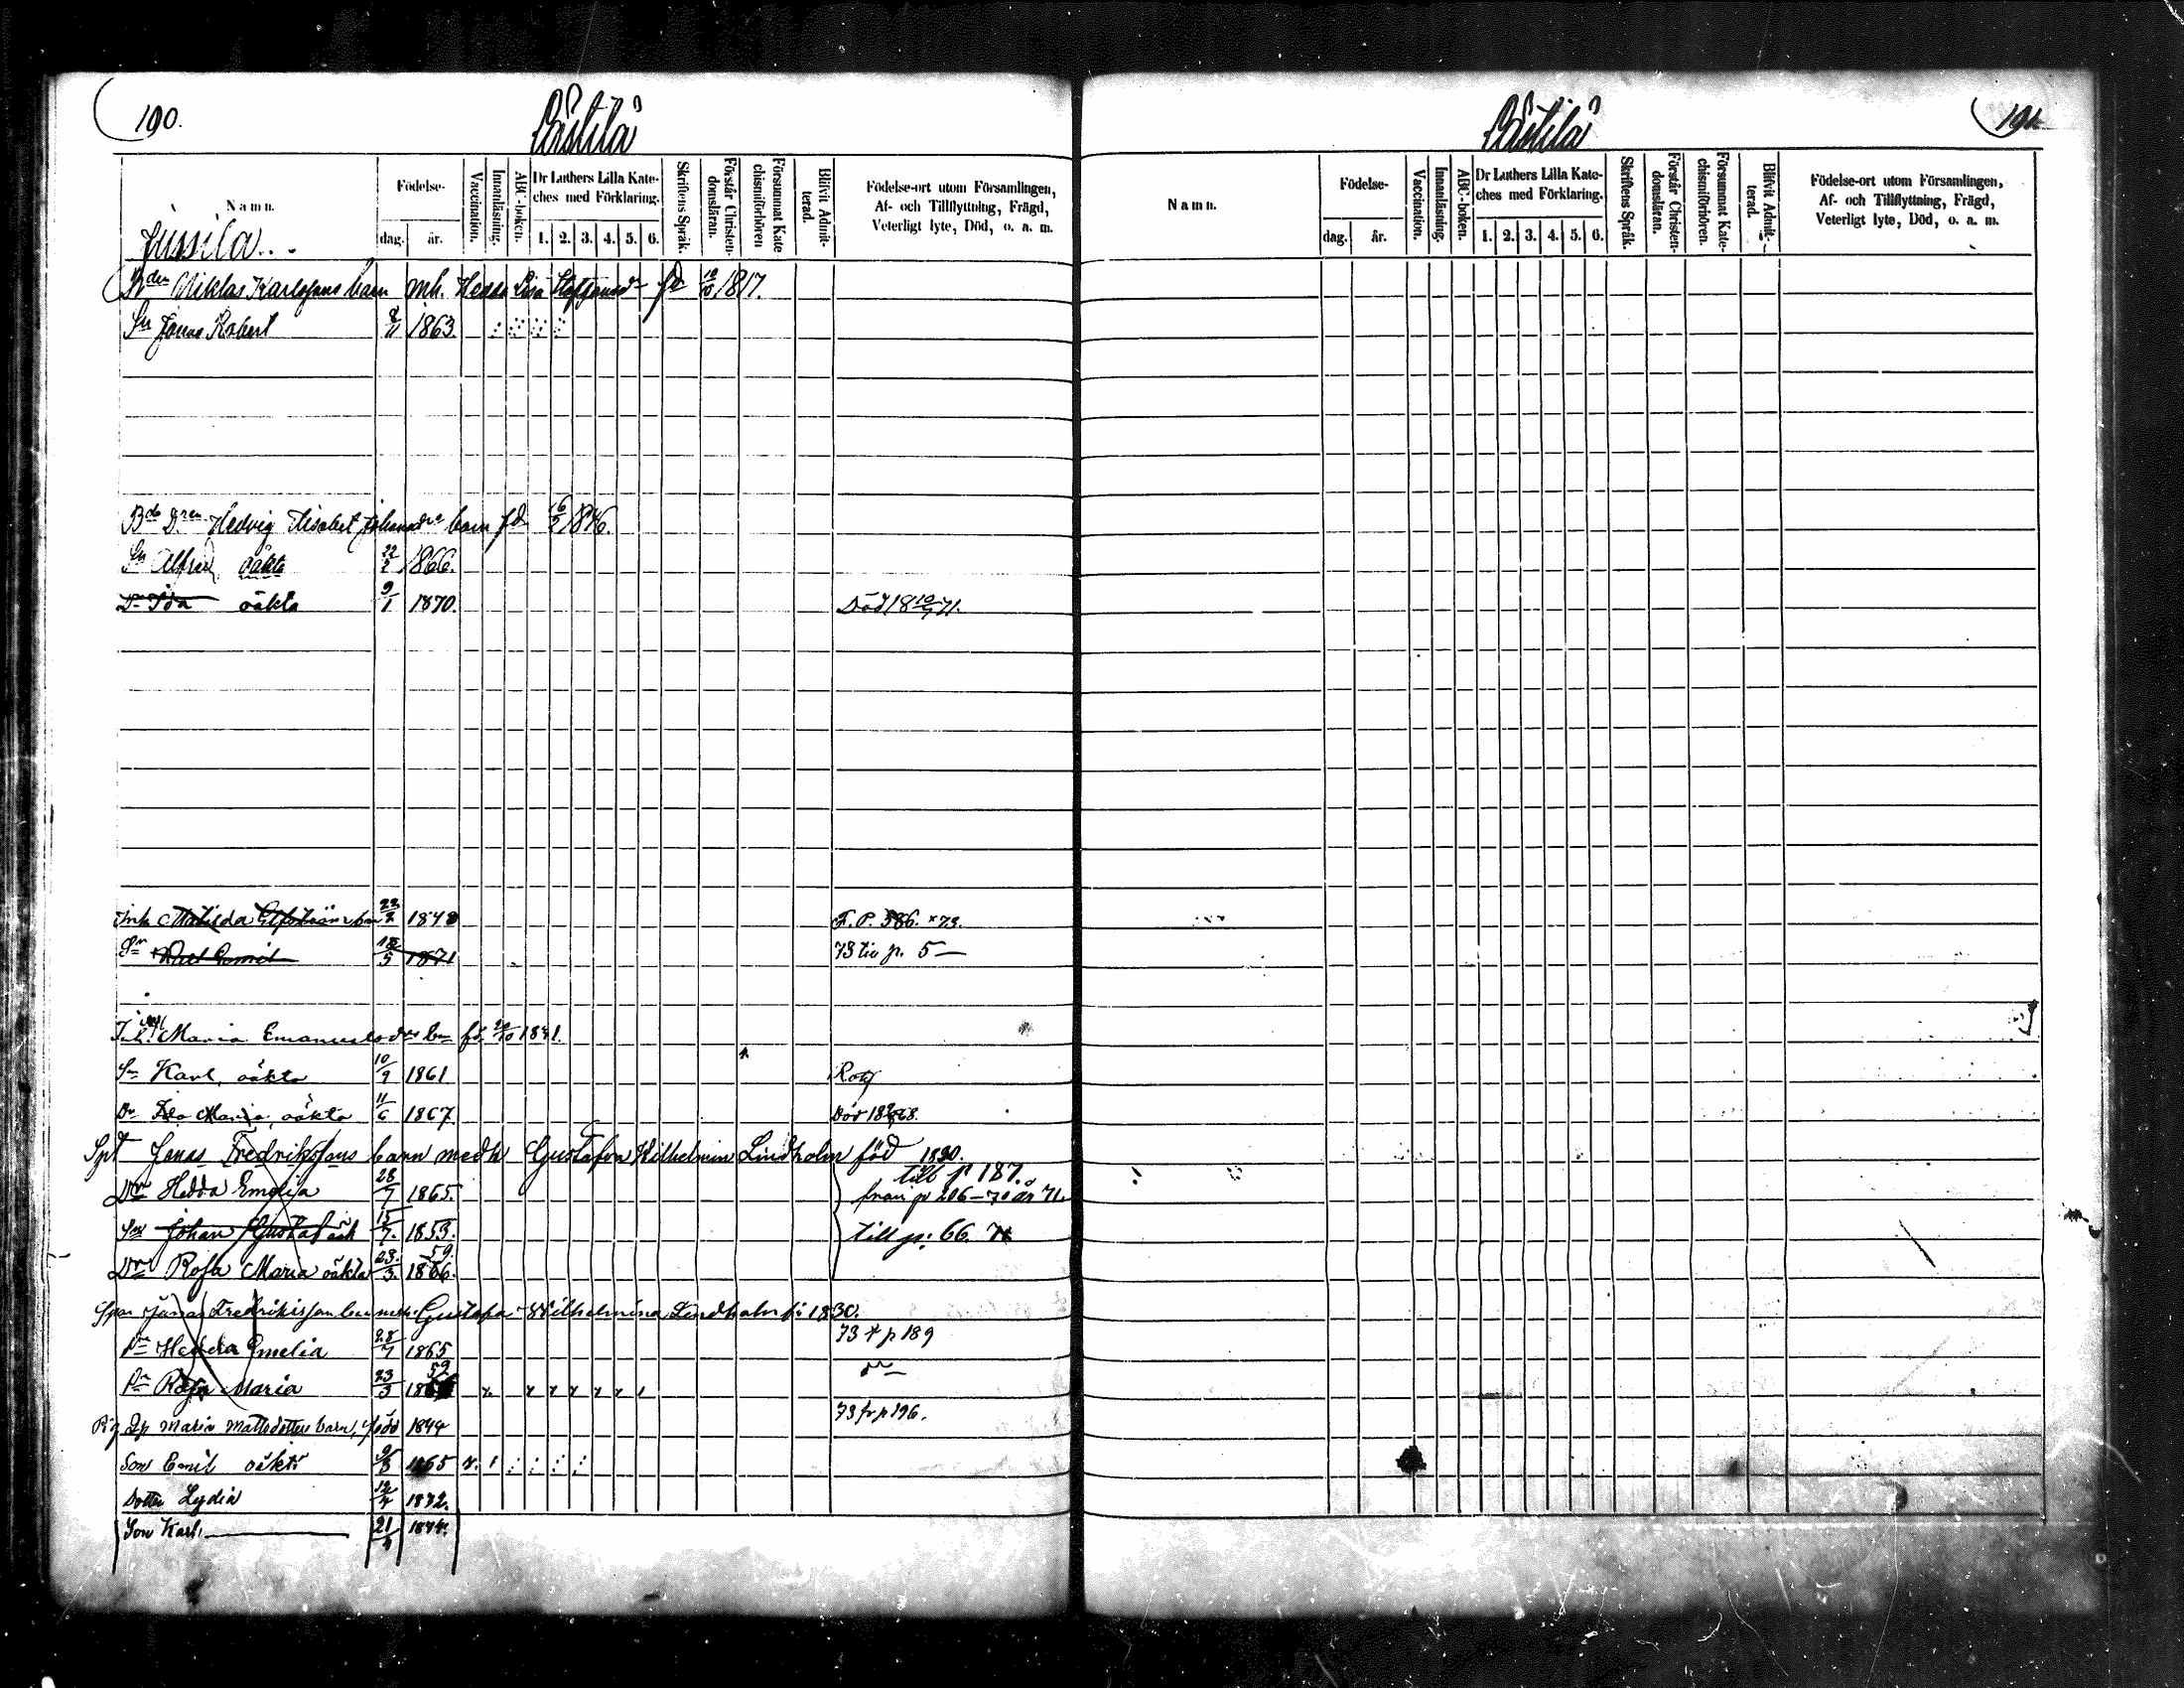 190.
Namn.
Födelse-
dag. år.
Vaccination.
Innanläsning.
ABC-boken.
Dr Luthers Lilla Kate-
ches med Förklaring.
1. 2. 3. 4. 5. 6.
Skriftens Språk.
Förstår Christen-
domsläran.
Försummat Kate
chismiförhören
Blifvit Admit-
terad.
Födelse-ort utom Församlingen,
Af- och Tillflyttning, Frägd,
Veterligt lyte, Död, o. a. m.
Jussila
Niklas Karlssons barn mh. Hedda Lisa 1817.
Sn Jonas Robert 1863.
Hedvig Elisabet barn fd 16/2 1846.
Sn Alfred oäkta 22/2 1866.
Dr Ida oäkta 9/1 1870. Död 18 71.
Matilda 1848 F. P. 586. 73.
Sn Karl Emil 18/5 1871 73 till p. 5
Maria Emanuelsdrs bn fd. 1841.
Sn Karl, oäkta 10/9 1861
Dr Ida Maria, oäkta 11/6 1867 Död 68.
Jonas Fredrikssons barn medh Gustafva Wilhelmin Lindholm föd 1830.
till p 187.
Dr Hedda Emelia 28/7 1865. från p 206-70 år 71.
Sn Johan Gustaf oäk 15/7. 1853. till p: 66. 71
Dr Rosa Maria oäkta 23./3. 1866. 59.
Jonas Fredriksson barn meh. Gustafva Wilhelmina Lindholm fö: 1830.
Hedda Emelia 28/7 1865 73 f p 189
Rosa Maria 23/3 59
Maria Mattsdotters barn, född 1844 73 fr p 196.
Son Emil oäkta 1865
Dotter Lydia 12/4 1872.
Son Karl 21/4 1874.
191.
Namn.
Födelse-
dag. år.
Vaccination.
Innanläsning.
ABC-boken.
Dr Luthers Lilla Kate-
ches med Förklaring.
1. 2. 3. 4. 5. 6.
Skriftens Språk.
Förstår Christen-
domsläran.
Försummat Kate-
chismiförhören.
Blifvit Admit-
terad.
Födelse-ort utom Församlingen,
Af- och Tillflyttning, Frägd,
Veterligt lyte, Död, o. a. m.